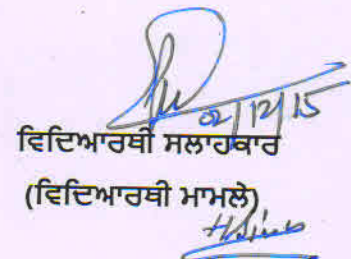 02/12/15
ਵਿਦਿਆਰਥੀ ਸਲਾਹਕਾਰ
(ਵਿਦਿਆਰਥੀ ਮਾਮਲੇ)